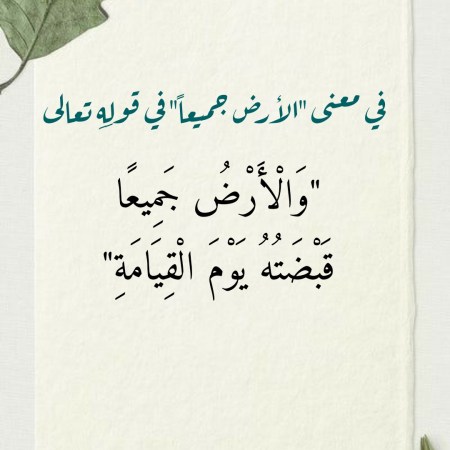 في معنى "الأرض جميعاً" في قولِه تعالى
"وَالْأَرْضُ جَمِيعًا
قَبْضَتُهُ يَوْمَ الْقِيَامَةِ"